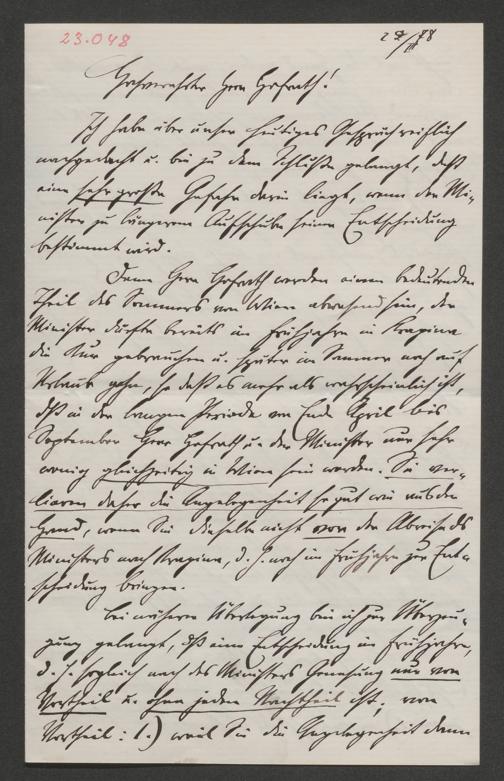 23.048
27/II 88
Hochverehrter Herr Hofrath!
Ich habe über unser heutiges Gespräch reiflich
nachgedacht u. bin zu dem Schluße gelangt, daß
eine sehr große Gefahr darin liegt, wenn der Mi-
nister zu längerem Aufschube seiner Entscheidung
bestimmt wird.
Denn Herr Hofrath werden einen bedeutenden
Theil des Sommers von Wien abwesend sein, der
Minister dürfte bereits im Frühjahre in Krapina
die Kur gebrauchen u. später im Sommer noch auf
Urlaub gehn, so daß es mehr als wahrscheinlich ist,
daß in der langen Periode von Ende April bis
September Herr Hofrath u. der Minister nur sehr
wenig gleichzeitig in Wien sein werden. Sie ver-
lieren daher die Angelegenheit so gut wie aus der
Hand, wenn Sie dieselbe nicht vor der Abreise des
Ministers nach Krapina, d. h. noch im Frühjahre zur Ent-
scheidung bringen.
Bei näherer Überlegung bin ich zur Überzeu-
gung gelangt, daß eine Entscheidung im Frühjahre,
d. h. sogleich nach des Ministers Genesung nur von
Vortheil u. ohne jeden Nachtheil ist; von
Vortheil: 1.) weil Sie die Angelegenheit dann